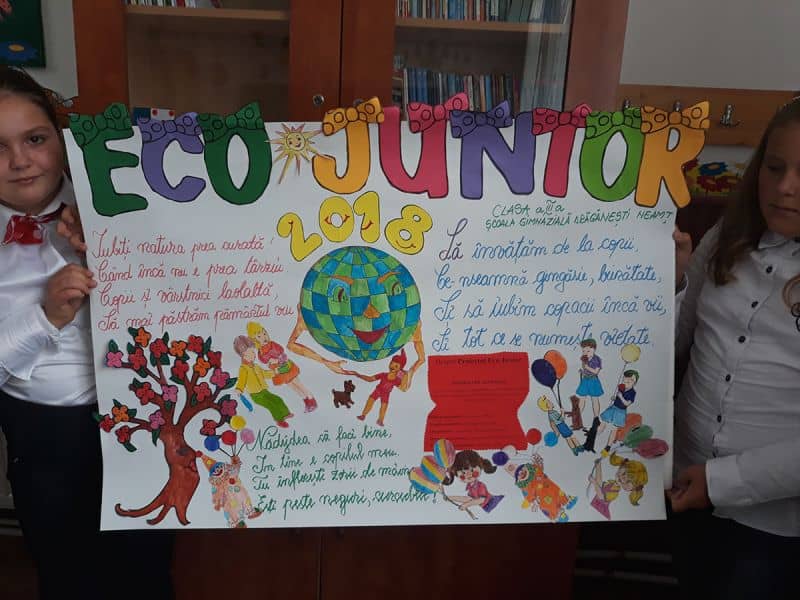 ECO JUNIOR
2018
CLASA a III a
ȘCOALA GIMNAZIALĂ DRĂGĂNEȘTI NEAMȚ
Iubiți natura prea curată
Când încă nu e prea târziu
Copii și vârstnici laolaltă,
Să mai păstrăm pământul viu
Să învățăm de la copii,
Ce-nseamnă gingășie, bunătate,
Și să iubim copacii încă vii,
Și tot ce se numește vietate.
Proiectul Eco Junior
Nădejdea să faci bine,
În tine e copilul meu.
Tu înflorești zorii de mâine
Ești peste neguri, curcubeu!